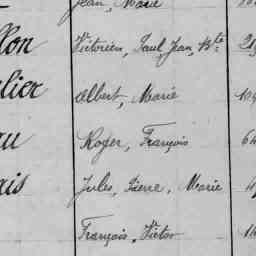 Jean, Marie
llon Victorien, Paul Jean, Bte
Albert, Marie
Roger, François
ais Jules, Pierre, Marie
François, Victor